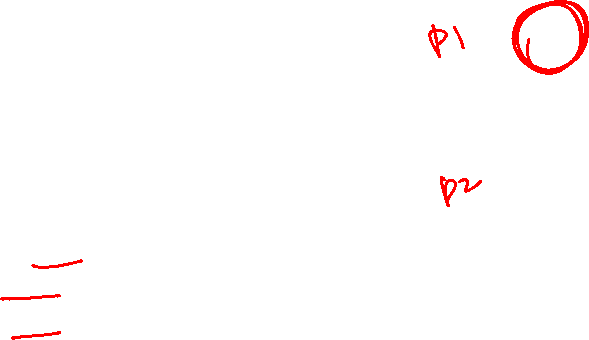 p1
p2